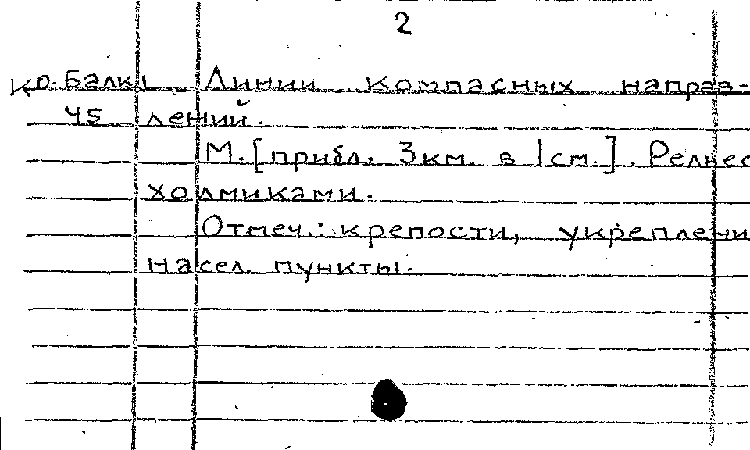 2
Кр. Балкы Линии компасных направ-
45 лений.
М. [прибл. 3 км. в 1 см.]. Рельеф
холмиками.
Отмеч.: крепости, укреплени
насел. пункты.